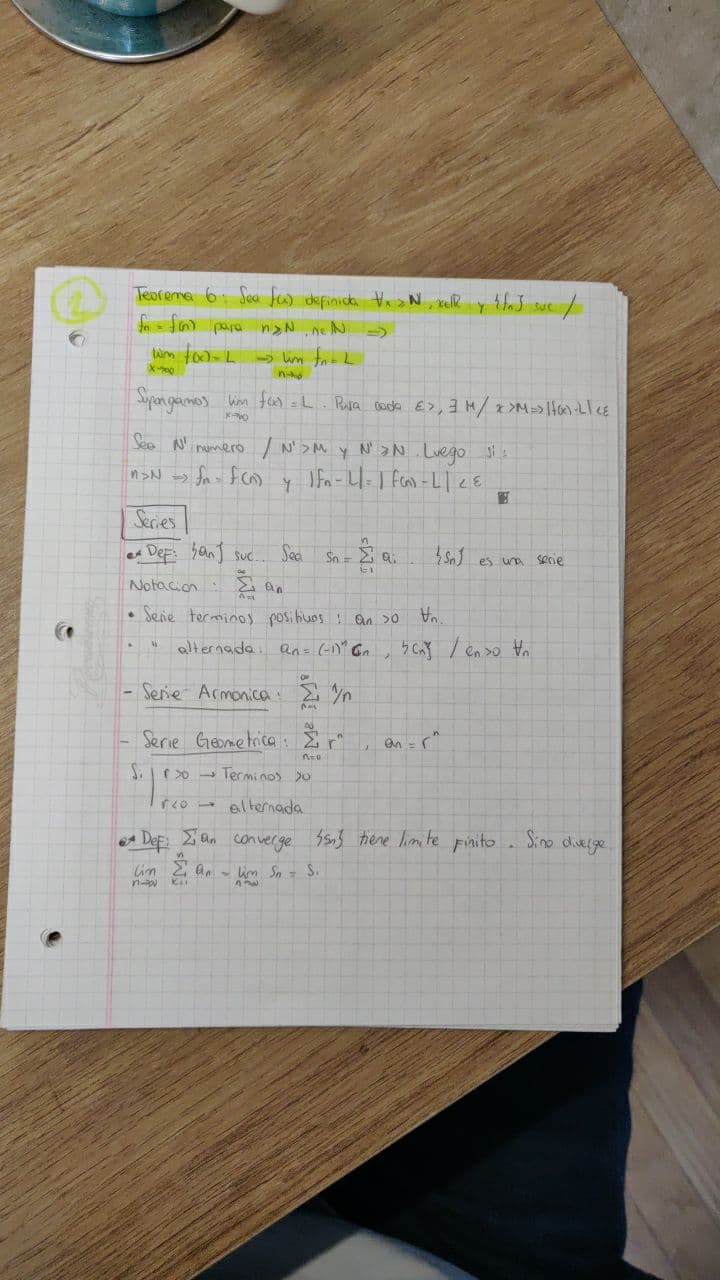 2
Teorema 6: Sea f(x) definida ∀x ≥ N, x∈ℝ y {fn} suc /
fn = f(n) para n≥N, n∈N ⇒
lim x→∞ f(x) = L ⇒ lim n→∞ fn = L
Supongamos lim x→∞ f(x) = L. Para cada ε>, ∃ M / x>M ⇒ |f(x)-L| < ε
Sea N' numero / N' > M y N' ≥ N. Luego si:
n>N ⇒ fn = f(n) y |fn - L| = |f(n) - L| < ε
Series
Def: {an} suc.. Sea Sn = ∑ i=1 n ai. {Sn} es una serie
Notacion: ∑ n=1 ∞ an
• Serie terminos positivos: an >0 ∀n.
• " alternada: an = (-1)ⁿ Cn, {Cn} / cn>0 ∀n
- Serie Armonica: ∑ n=1 ∞ 1/n
- Serie Geometrica: ∑ n=0 ∞ rⁿ, an = rⁿ
Si r >0 → Terminos >0
r<0 → alternada
Def: ∑ an converge {Sn} tiene limite finito. Sino diverge
lim n→∞ ∑ k=1 n an = lim n→∞ Sn = S.